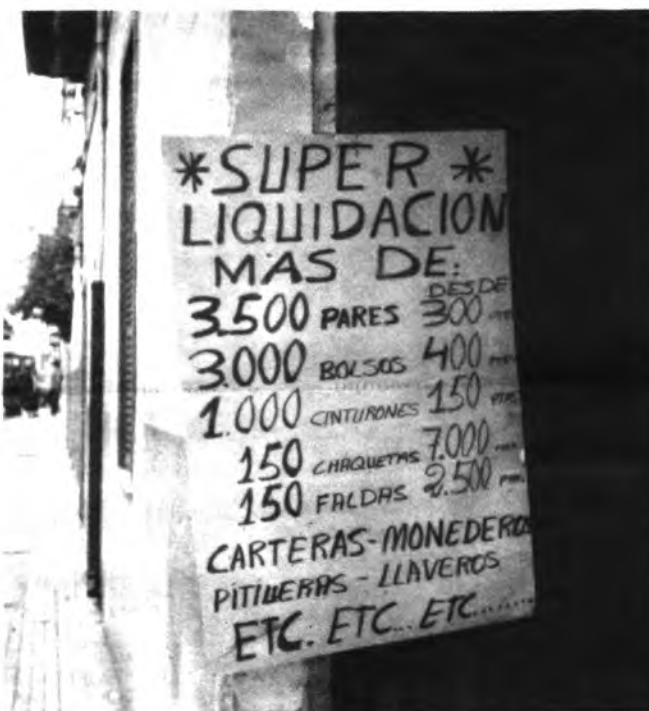 *SUPER*
LIQUIDACION
MAS DE:
DESDE
3.500 PARES 300 PTAS
3.000 BOLSOS 400 PTAS
1.000 CINTURONES 150 PTAS
150 CHAQUETAS 7.000 PTAS
150 FALDAS 2.500 PTAS
CARTERAS-MONEDEROS
PITILLERAS - LLAVEROS
ETC. ETC... ETC........